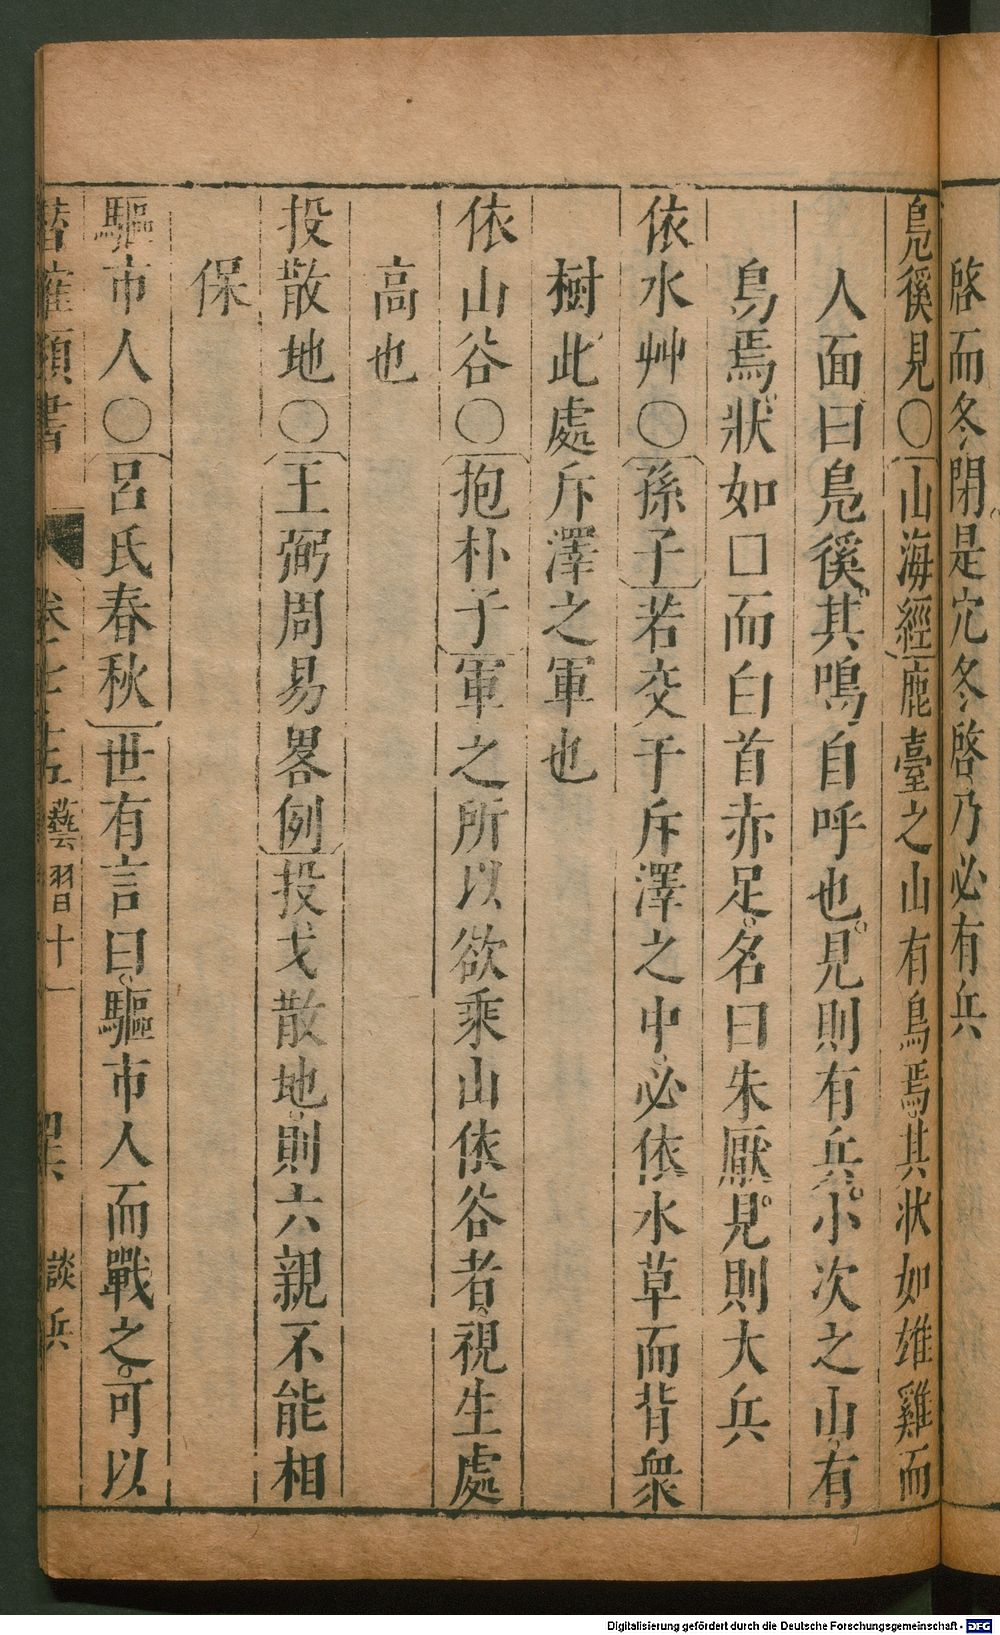 啓而冬閉是冗冬啓乃必有兵
鳧徯見〇山海經鹿臺之山有鳥焉其状如雄雞而
人面曰鳧徯其鳴自呼也見則有兵小次之山有
鳥焉狀如口而白首赤足名曰朱厭見則大兵
依水艸〇孫子若交于斥澤之中必依水草而背衆
樹此處斥澤之軍也
依山谷〇抱朴子軍之所以欲乘山依谷者視生處
高也
投散地〇王弼周易畧例投戈散地則六親不能相
保
驅市人〇呂氏春秋世有言曰驅市人而戰之可以
類書 卷 藝習十一 談兵
Digitalisierung gefördert durch die Deutsche Forschungsgemeinschaft - DFG